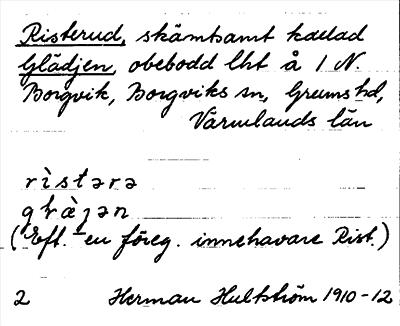 Risterud, skämtsamt kallad
Glädjen, obebodd lht å 1 N.
Borgvik, Borgviks sn, Grums hd,
Värmlands län
rìstərə
glæ̀jən
(Eft. en föreg. innehavare Rist.)
2 Herman Hultström 1910-12